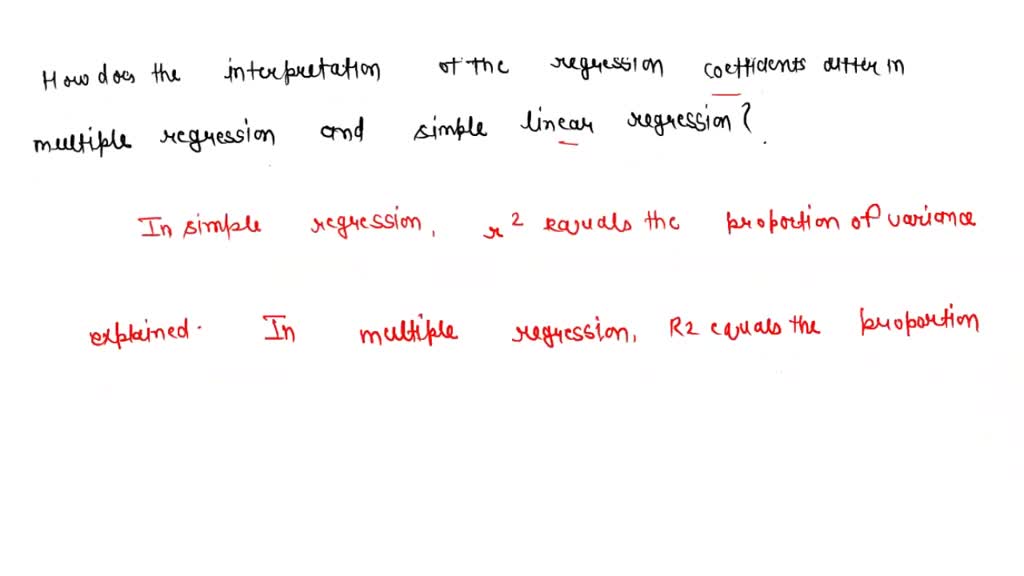 How does the interpretation of the regression coefficients differ in
multiple regression and simple linear regression?
In simple regression, r² equals the proportion of variance
explained. In multiple regression, R2 equals the proportion